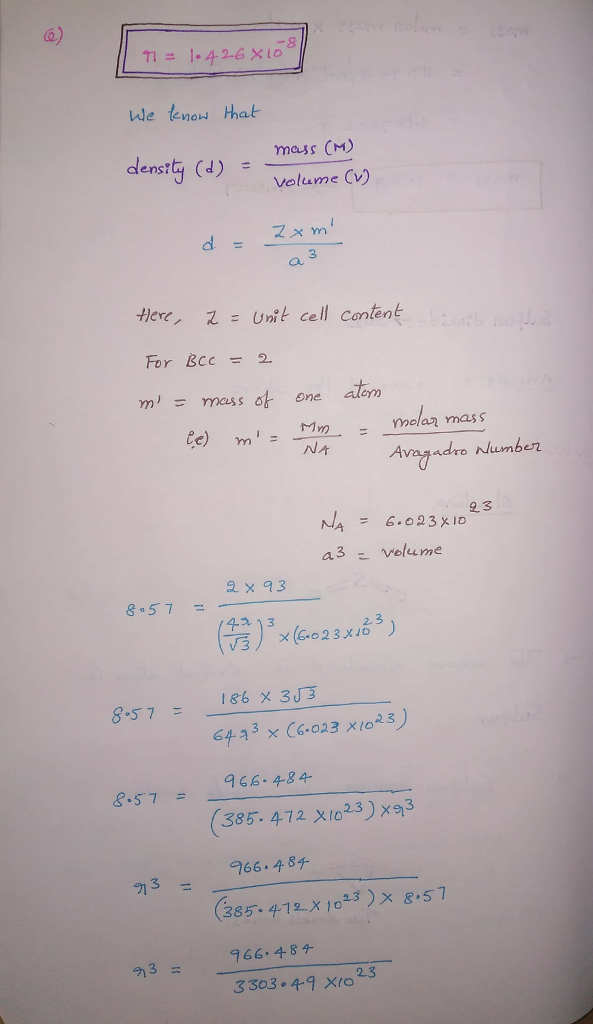 Q)
r = 1.426 X 10^-8
We know that
density (d) = mass (M) / volume (V)
d = Z x m' / a^3
Here, Z = Unit cell content
For BCC = 2
m' = mass of one atom
i.e) m' = Mm / NA = molar mass / Avagadro Number
NA = 6.023 X 10^23
a3 = volume
8.57 = 2 x 93 / (4r/√3)^3 x (6.023 X 10^23)
8.57 = 186 X 3√3 / 64r^3 x (6.023 X 10^23)
8.57 = 966.484 / (385.472 X 10^23) X r^3
r3 = 966.484 / (385.472 X 10^23) X 8.57
r3 = 966.484 / 3303.49 X 10^23